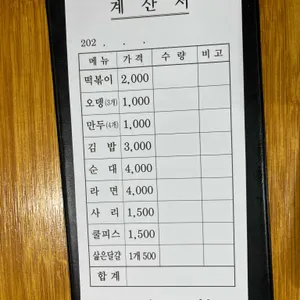 계 산 서
202 . . .
메뉴 가격 수 량 비고
떡볶이 2,000
오뎅(3개) 1,000
만두(4개) 1,000
김 밥 3,000
순 대 4,000
라 면 4,000
사 리 1,500
쿨피스 1,500
삶은달걀 1개 500
합 계